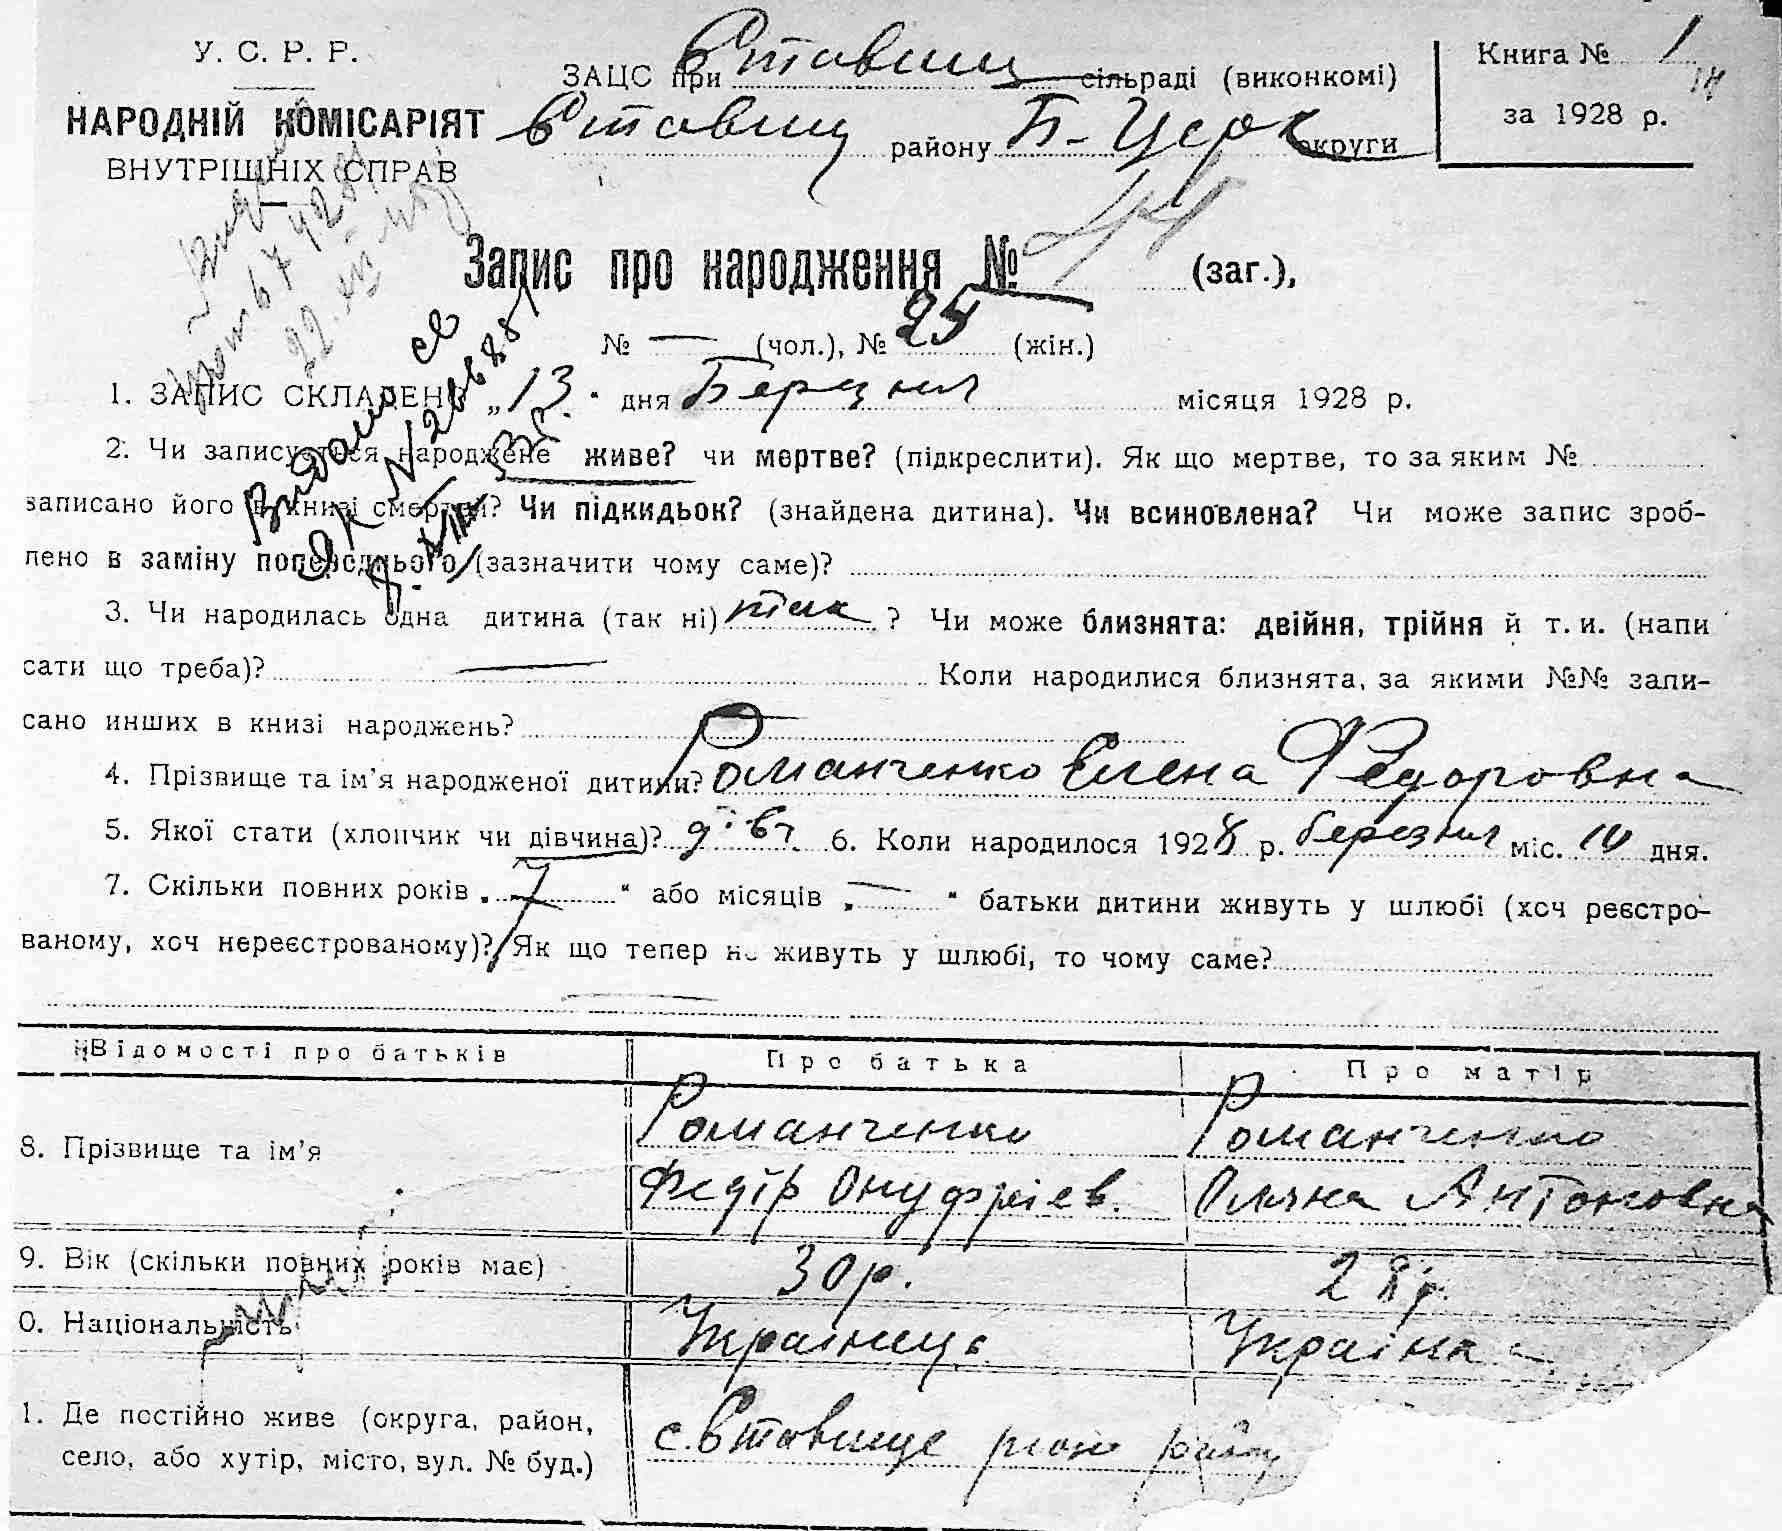 У. С. Р. Р.
НАРОДНІЙ КОМІСАРІЯТ
ВНУТРІШНІХ СПРАВ
ЗАЦС при Ставищ сільраді (виконкомі)
Ставищ району Б-Церк округи
Книга № 1
за 1928 р.
Запис про народження № 44 (заг.),
№ — (чол.), № 25 (жін.)
1. ЗАПИС СКЛАДЕНО „13“ дня Березня місяця 1928 р.
2. Чи записується народжене живе? чи мертве? (підкреслити). Як що мертве, то за яким №
записано його в книзі смертей? Чи підкидьок? (знайдена дитина). Чи всиновлена? Чи може запис зроб-
лено в заміну попереднього (зазначити чому саме)?
3. Чи народилась одна дитина (так ні) так ? Чи може близнята: двійня, трійня й т. и. (напи
сати що треба)? — Коли народилися близнята, за якими №№ запи-
сано инших в книзі народжень? —
4. Прізвище та ім’я народженої дитини? Романченко Елена Федоровна
5. Якої стати (хлопчик чи дівчина)? дівч. 6. Коли народилося 1928 р. березня міс. 10 дня.
7. Скільки повних років „7“ або місяців „—“ батьки дитини живуть у шлюбі (хоч реєстро-
ваному, хоч нереєстрованому)? Як що тепер не живуть у шлюбі, то чому саме?
—
Відомості про батьків Про батька Про матір
8. Прізвище та ім’я Романченко Романченко
Федір Онуфріев. Оляна Антоновна
9. Вік (скільки повних років має) 30 р. 28 р.
0. Національність Українець Українка
1. Де постійно живе (округа, район, с. Ставище
село, або хутір, місто, вул. № буд.)
Видано св
ЯК N